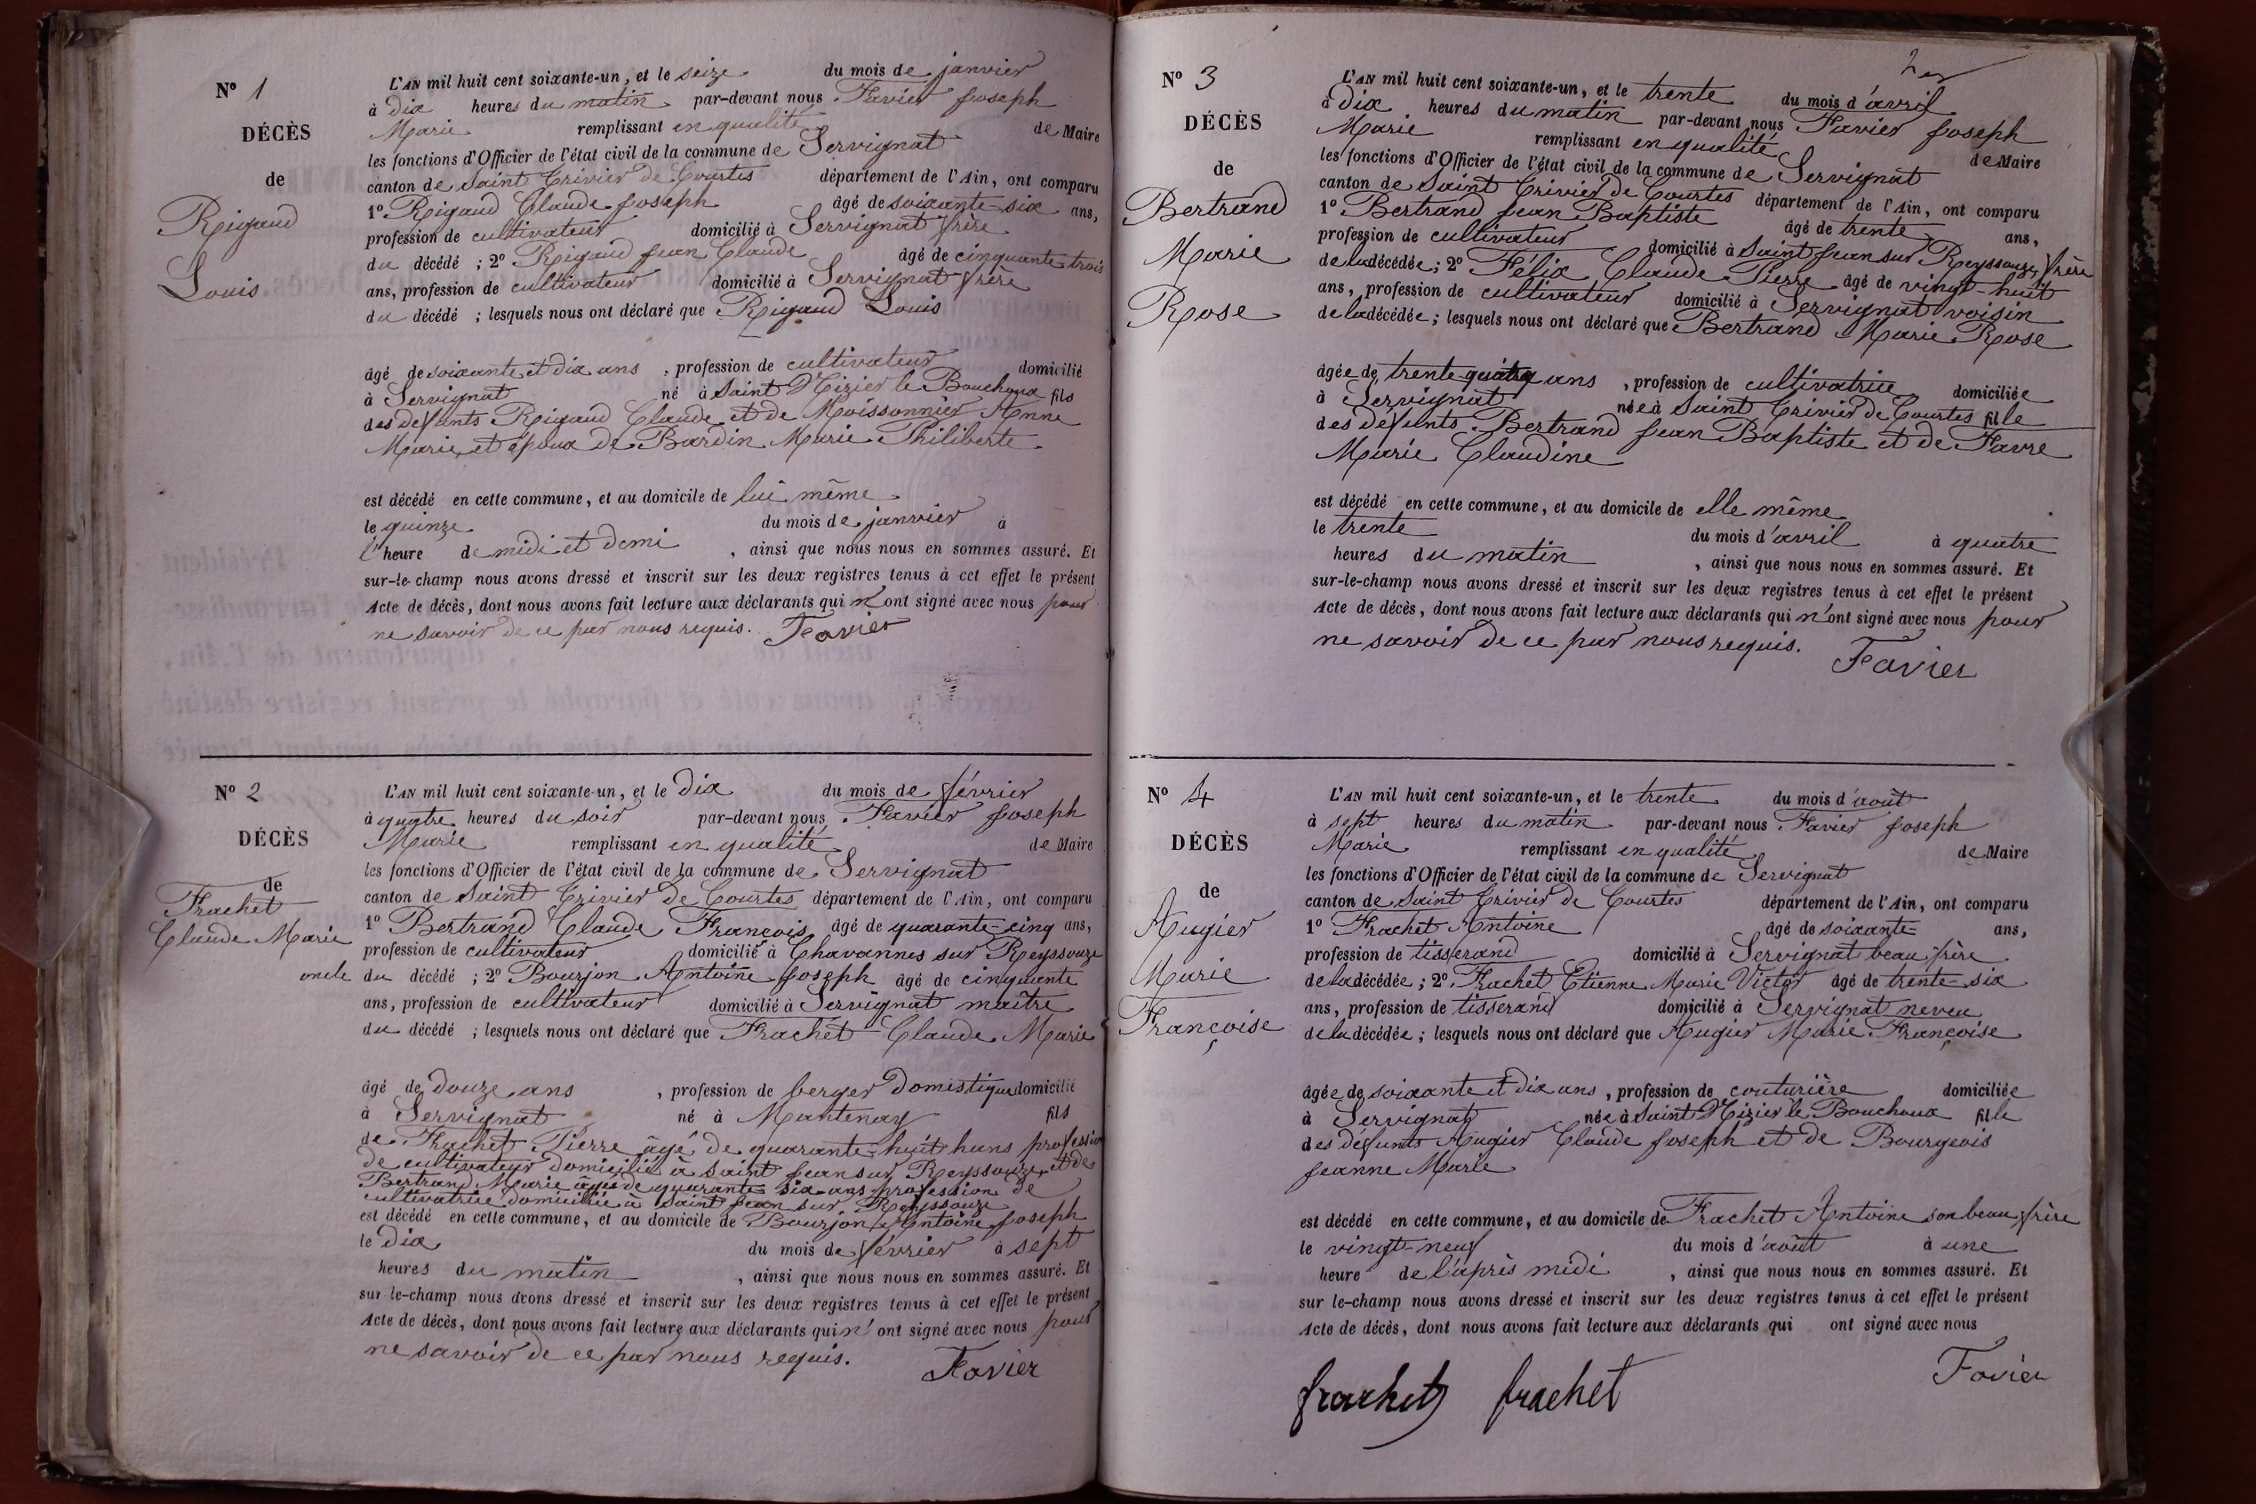 N° 1
DÉCÈS
de
Rigaud
Louis
L'AN mil huit cent soixante-un, et le seize du mois de janvier
à dix heures du matin par-devant nous Favier Joseph
Marie remplissant en qualité de Maire
les fonctions d'Officier de l'état civil de la commune de Servignat
canton de Saint Trivier de Courtes département de l'Ain, ont comparu
1° Rigaud Claude Joseph âgé de soixante-six ans,
profession de cultivateur domicilié à Servignat frère
du décédé ; 2° Rigaud Jean Claude âgé de cinquante trois
ans, profession de cultivateur domicilié à Servignat frère
du décédé ; lesquels nous ont déclaré que Rigaud Louis
âgé de soixante et dix ans , profession de cultivateur domicilié
à Servignat né à Saint Nizier le Bouchoux fils
des défunts Rigaud Claude et de Moissonnier Anne
Marie, et époux de Bardin Marie Philiberte
est décédé en cette commune, et au domicile de lui même
le quinze du mois de janvier à
l'heure de midi et demi , ainsi que nous nous en sommes assuré. Et
sur-le-champ nous avons dressé et inscrit sur les deux registres tenus à cet effet le présent
Acte de décès, dont nous avons fait lecture aux déclarants qui n'ont signé avec nous pour
ne savoir de ce par nous requis. Favier
N° 2
DÉCÈS
de
Frachet
Claude Marie
L'AN mil huit cent soixante-un, et le dix du mois de février
à quatre heures du soir par-devant nous Favier Joseph
Marie remplissant en qualité de Maire
les fonctions d'Officier de l'état civil de la commune de Servignat
canton de Saint Trivier de Courtes département de l'Ain, ont comparu
1° Bertrand Claude François âgé de quarante-cinq ans,
profession de cultivateur domicilié à Chavannes sur Reyssouze
oncle du décédé ; 2° Bourjon Antoine Joseph âgé de cinquante
ans, profession de cultivateur domicilié à Servignat maître
du décédé ; lesquels nous ont déclaré que Frachet Claude Marie
âgé de douze ans , profession de berger domistique domicilié
à Servignat né à Mantenay fils
de Frachet Pierre âgé de quarante-huit hans profession
de cultivateur domicilié à Saint Jean sur Reyssouze et de
Bertrand Marie âgée de quarante six ans profession de
cultivatrice domiciliée à Saint Jean sur Reyssouze
est décédé en cette commune, et au domicile de Bourjon Antoine Joseph
le dix du mois de février à sept
heures du matin , ainsi que nous nous en sommes assuré. Et
sur le-champ nous avons dressé et inscrit sur les deux registres tenus à cet effet le présent
Acte de décès, dont nous avons fait lecture aux déclarants qui n'ont signé avec nous pour
ne savoir de ce par nous requis. Favier
N° 3
DÉCÈS
de
Bertrand
Marie
Rose
L'AN mil huit cent soixante-un, et le trente du mois d'avril
à dix heures du matin par-devant nous Favier Joseph
Marie remplissant en qualité de Maire
les fonctions d'Officier de l'état civil de la commune de Servignat
canton de Saint Trivier de Courtes département de l'Ain, ont comparu
1° Bertrand Jean Baptiste âgé de trente ans,
profession de cultivateur domicilié à Saint Jean sur Reyssouze, frère
de la décédée ; 2° Félix Claude Pierre âgé de vingt-huit
ans, profession de cultivateur domicilié à Servignat voisin
de la décédée ; lesquels nous ont déclaré que Bertrand Marie Rose
âgée de trente-quatre ans , profession de cultivatrice domiciliée
à Servignat née à Saint Trivier de Courtes fille
des défunts Bertrand Jean Baptiste et de Favre
Marie Claudine
est décédé en cette commune, et au domicile de elle même
le trente du mois d'avril à quatre
heures du matin , ainsi que nous nous en sommes assuré. Et
sur-le-champ nous avons dressé et inscrit sur les deux registres tenus à cet effet le présent
Acte de décès, dont nous avons fait lecture aux déclarants qui n'ont signé avec nous pour
ne savoir de ce par nous requis. Favier
N° 4
DÉCÈS
de
Augier
Marie
Françoise
L'AN mil huit cent soixante-un, et le trente du mois d'août
à sept heures du matin par-devant nous Favier Joseph
Marie remplissant en qualité de Maire
les fonctions d'Officier de l'état civil de la commune de Servignat
canton de Saint Trivier de Courtes département de l'Ain, ont comparu
1° Frachet Antoine âgé de soixante ans,
profession de tisserand domicilié à Servignat beau frère
de la décédée ; 2° Frachet Etienne Marie Victor âgé de trente-six
ans, profession de tisserand domicilié à Servignat neveu
de la décédée ; lesquels nous ont déclaré que Augier Marie Françoise
âgée de soixante et dix ans , profession de couturière domiciliée
à Servignat née à Saint Nizier le Bouchoux fille
des défunts Augier Claude Joseph et de Bourgeois
Jeanne Marie
est décédé en cette commune, et au domicile de Frachet Antoine son beau frère
le vingt-neuf du mois d'août à une
heure de l'après midi , ainsi que nous nous en sommes assuré. Et
sur le-champ nous avons dressé et inscrit sur les deux registres tenus à cet effet le présent
Acte de décès, dont nous avons fait lecture aux déclarants qui ont signé avec nous
frachet frachet Favier